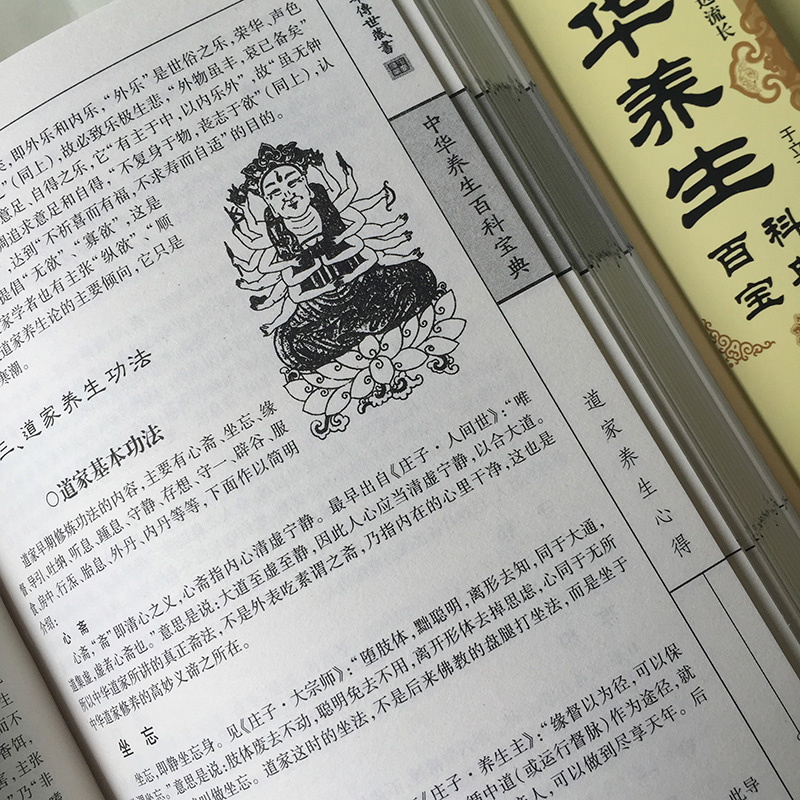 即外乐和内乐，“外乐”是世俗之乐，荣华，声色
”（同上），故必致乐极生悲，“外物虽丰，哀已备矣”
意足，自得之乐，它“有主于中，以内乐外”，故“虽无钟
调追求意足和自得，“不复身于物，丧志于欲”（同上），认
，达到“不祈喜而有福，不求寿而自适”的目的。
提倡“无欲”、“寡欲”，这是
家学者也有主张“纵欲”、“顺
道家养生论的主要倾向，它只是
寒潮。
三、道家养生功法
○道家基本功法
道家早期修炼功法的内容，主要有心斋、坐忘、缘
督、导引、吐纳、听息、踵息、守静、存想、守一、辟谷、服
食、房中、行炁、胎息、外丹、内丹等等，下面作以简明
介绍：
心斋
心斋，“斋”即清心之义，心斋指内心清虚宁静。最早出自《庄子·人间世》：“唯
道集虚，虚者心斋也。”意思是说：大道至虚至静，因此人心应当清虚宁静，以合大道。
所以中华道家所讲的真正斋法，不是外表吃素谓之斋，乃指内在的心里干净，这也是
中华道家修养的高妙义谛之所在。
坐忘
坐忘，即静坐忘身。见《庄子·大宗师》：“堕肢体，黜聪明，离形去知，同于大通，
”意思是说：肢体废去不动，聪明免去不用，离开形体去掉思虑，心同于无所
叫做坐忘。道家这时的坐法，不是后来佛教的盘腿打坐法，而是坐于
《庄子·养生主》：“缘督以为径，可以保
中道（或运行督脉）作为途径，就
，可以做到尽享天年。后
此导
传世藏书
中华养生百科宝典
道家养生心得
华养生
百科
宝典
远流长
于立
而不
香饵，
主张
乃“非